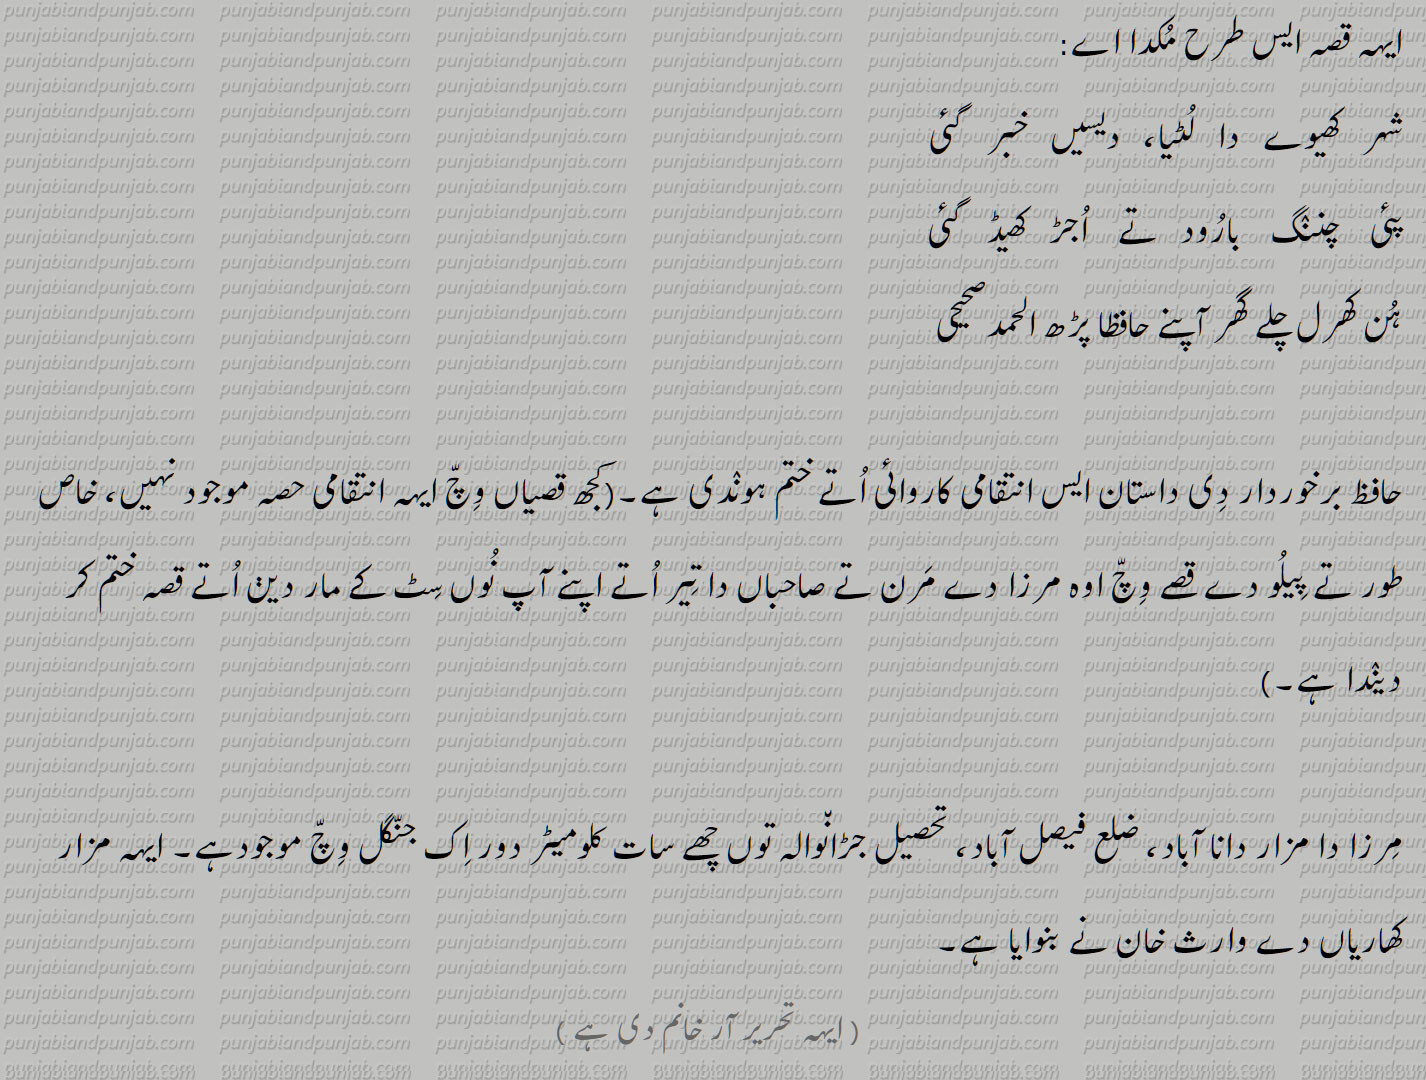 ایہہ قصہ ایس طرح مُکدا اے:
شہر کھیوے دا لُٹیا، دیسیں خبر گئی
پئی چننگ بارُود تے اُجڑ کھیڈ گئی
ہُن کھرل چلے گھر آپنے حافظا پڑھ الحمد صحیحی
حافظ برخوردار دِی داستان ایس انتقامی کاروائی اُتے ختم ہوندی ہے۔(کجھ قصیاں وِچّ ایہہ انتقامی حصہ موجود نہیں، خاص
طور تے پِیلُو دے قصے وِچّ اوہ مرزا دے مَرن تے صاحباں دا تِیر اُتے اپنے آپ نُوں سِٹ کے مار دین اُتے قصہ ختم کر
دیندا ہے۔)
مِرزا دا مزار دانا آباد، ضلع فیصل آباد، تحصیل جڑانّوالہ توں چھے سات کلومیٹر دور اِک جنّگل وِچّ موجودہے۔ ایہہ مزار
کھاریاں دے وارث خان نے بنوایا ہے۔
( ایہہ تحریر آر خانم دی ہے )
punjabiandpunjab.com